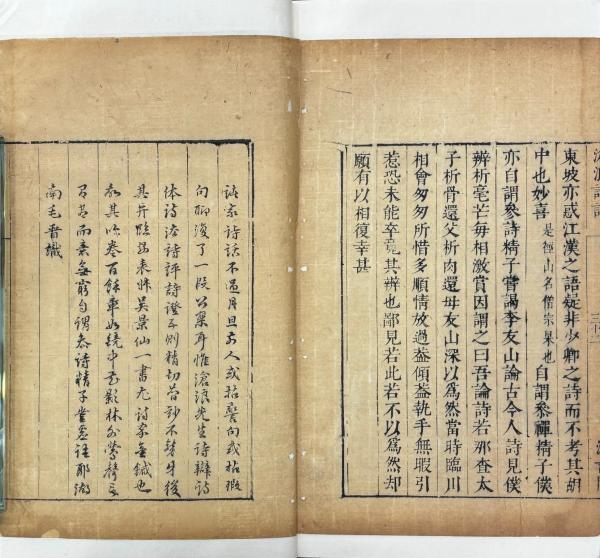 東坡亦惑江漢之語疑非少卿之詩而不考其胡
中也妙喜是徑山名僧宗杲也自謂參禪精子僕
亦自謂參詩精子嘗謁李友山論古今人詩見僕
辨析毫芒每相激賞因謂之曰吾論詩若那查太
子析骨還父析肉還母友山深以爲然當時臨川
相會匆匆所惜多順情放過蓋傾蓋執手無暇引
惹恐未能卒竟其辨也鄙見若此若不以爲然却
願有以相復幸甚
諸家詩話不過月旦前人或拈警句或拈瑕
句聊復了一段公案耳惟滄浪先生詩辯詩
體詩法詩評詩證五則精切簡妙不襲牛後
其與臨安表妹吳景仙一書尤詩家金鍼也
故其吟卷百餘章如鏡中花影林外鶯聲言
有盡而意無窮自謂參詩精子豈虛語耶湖
南毛晉識